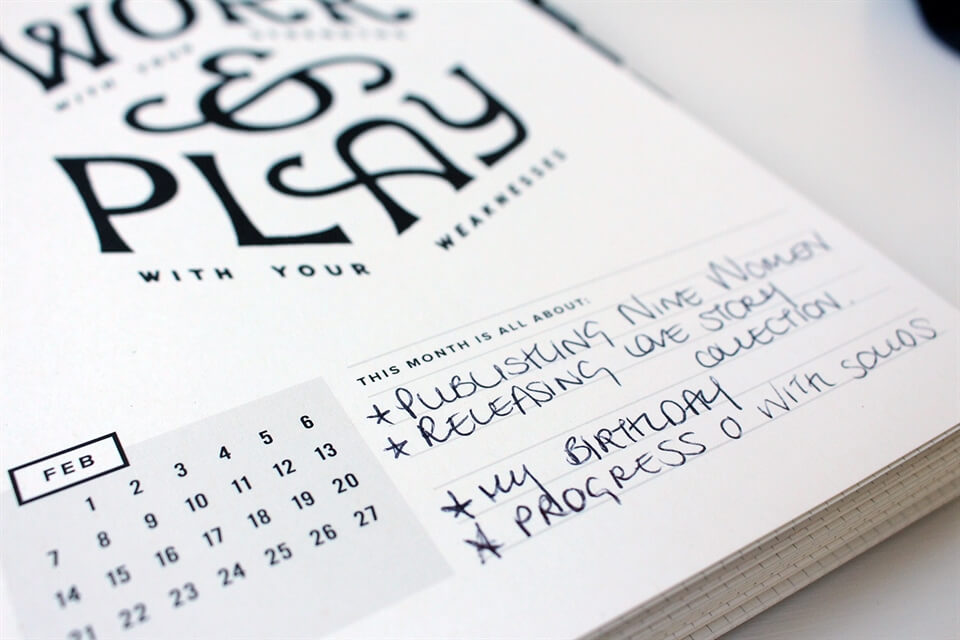 WORK
WITH YOUR STRENGTHS
&
PLAY
WITH YOUR WEAKNESSES
THIS MONTH IS ALL ABOUT:
★ PUBLISHING NINE WOMEN
★ RELEASING LOVE STORY
COLLECTION.
★ MY BIRTHDAY
★ PROGRESS O WITH SOLIDS
FEB
1 2 3 4 5 6
7 8 9 10 11 12 13
14 15 16 17 18 19 20
21 22 23 24 25 26 27